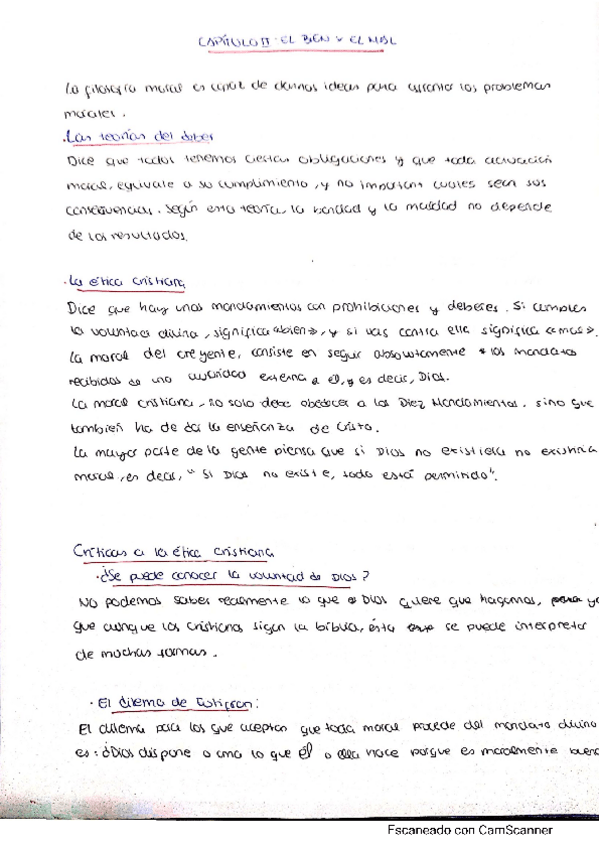 CAPÍTULO II: EL BIEN Y EL MAL
La filosofía moral es capaz de darnos ideas para afrontar los problemas
morales.
·Las teorías del deber
Dice que todos tenemos ciertas obligaciones y que toda actuación
moral, equivale a su cumplimiento, y no importan cuales sean sus
consecuencias. Según esta teoría, la bondad y la maldad no depende
de los resultados.
·La ética cristiana
Dice que hay unos mandamientos con prohibiciones y deberes. Si cumples
la voluntad divina, significa «bien», y si vas contra ella significa «mal».
La moral del creyente, consiste en seguir absolutamente los mandatos
recibidos de una autoridad externa a el, y es decir, Dios.
La moral cristiana, no solo debe obedecer a los Diez Mandamientos, sino que
también ha de da la enseñanza de Cristo.
La mayor parte de la gente piensa que si Dios no existiera no existiría
moral, es decir, "Si Dios no existe, todo está permitido".
Críticas a la ética cristiana
·¿Se puede conocer la voluntad de Dios?
No podemos saber realmente lo que Dios quiere que hagamos, ya
que aunque los cristianos sigan la biblia, ésta se puede interpretar
de muchas formas.
·El dilema de Eutifrón:
El dilema para los que aceptan que toda moral procede del mandato divino
es: ¿Dios dispone o ama lo que él o ella hace porque es moralmente bueno
Escaneado con CamScanner